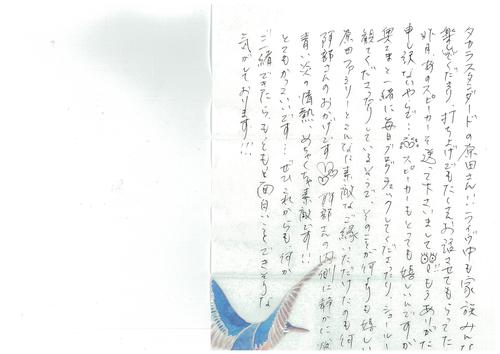 タカラスタンダードの原田さん!! ライヴ中も家族みんな
楽しんでくださり、打ち上げでもたくさんお話させてもらってた
昨月、あのスピーカーを送って下さいまして もうありがた
申し訳ないやらで… スピーカーもとっても嬉しいんですが
奥さまと一緒に毎日ブログチェックしてくださったり、ショールー
観てくださったりしているそうで、そのことが何よりも嬉しい
原田ファミリーとこんなた素敵なご縁いただけたのも何
阿部さんのおかげです 阿部さんの内側に静かに
青い炎の情熱、めちゃめちゃ素敵です!!
とてもかっこいいです… ぜひこれからも何か
ご一緒できたら、もっともっと面白いことできそうな
気がしております!!!